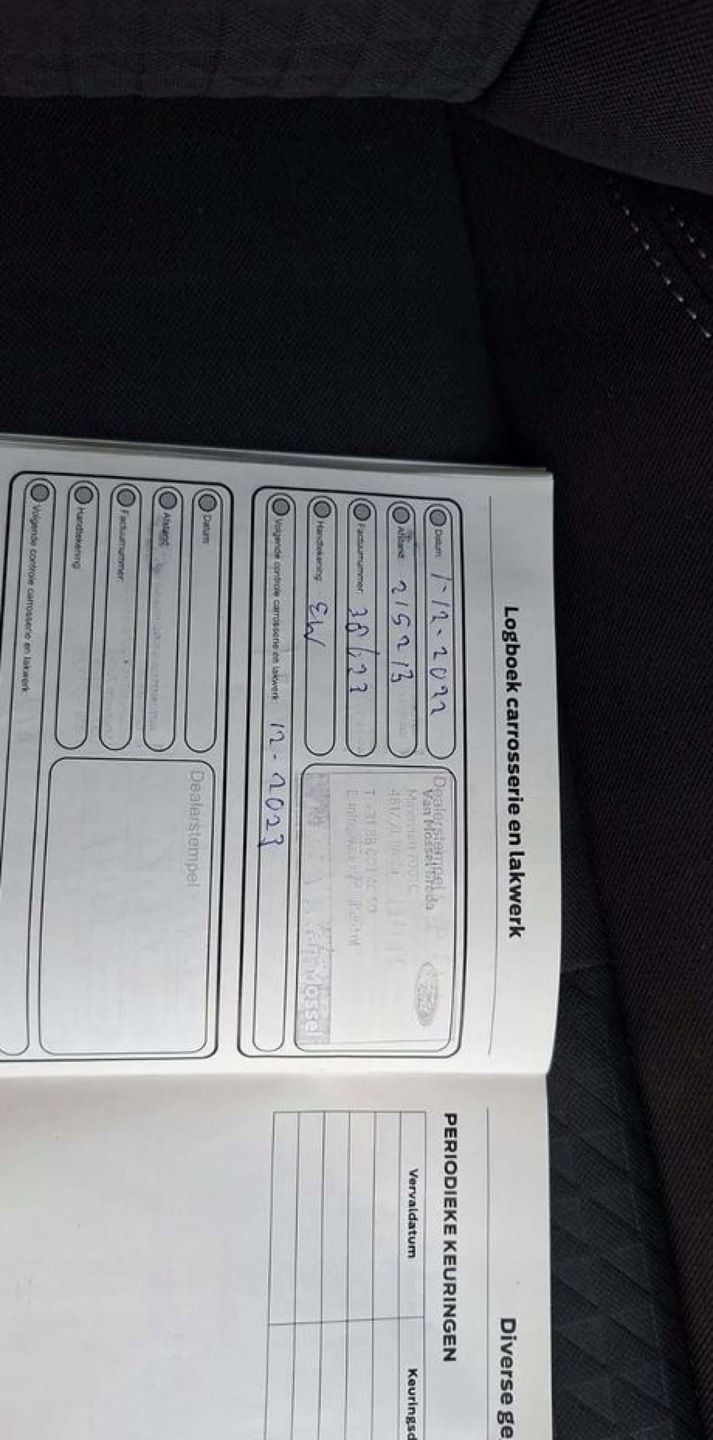 Logboek carrosserie en lakwerk
Datum: 1-12-2022
Afstand: 215213
Factuurnummer: 38/22
Handtekening: EW
Volgende controle carrosserie en lakwerk: 12-2023
Dealerstempel
Van Mossel Breda
Van Mossel
Datum:
Afstand:
Factuurnummer:
Handtekening:
Volgende controle carrosserie en lakwerk:
Dealerstempel
Diverse ge
PERIODIEKE KEURINGEN
Vervaldatum
Keuringsd